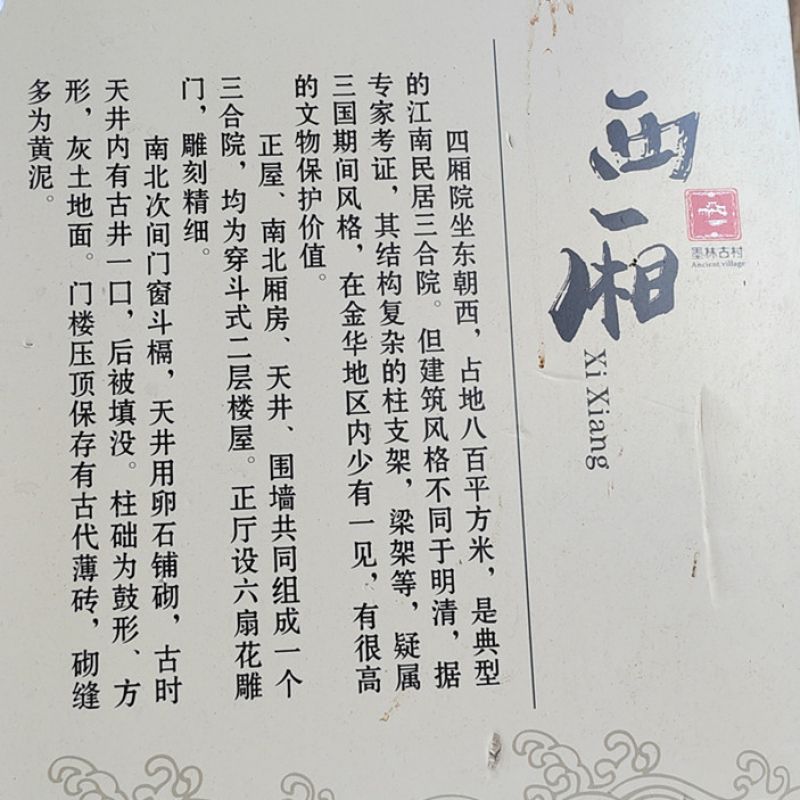 西厢
Xi Xiang
墨林古村
Ancient village
四厢院坐东朝西，占地八百平方米，是典型
的江南民居三合院。但建筑风格不同于明清，据
专家考证，其结构复杂的柱支架，梁架等，疑属
三国期间风格，在金华地区内少有一见，有很高
的文物保护价值。
正屋、南北厢房、天井、围墙共同组成一个
三合院，均为穿斗式二层楼屋。正厅设六扇花雕
门，雕刻精细。
南北次间门窗斗槅，天井用卵石铺砌，古时
天井内有古井一口，后被填没。柱础为鼓形、方
形，灰土地面。门楼压顶保存有古代薄砖，砌缝
多为黄泥。